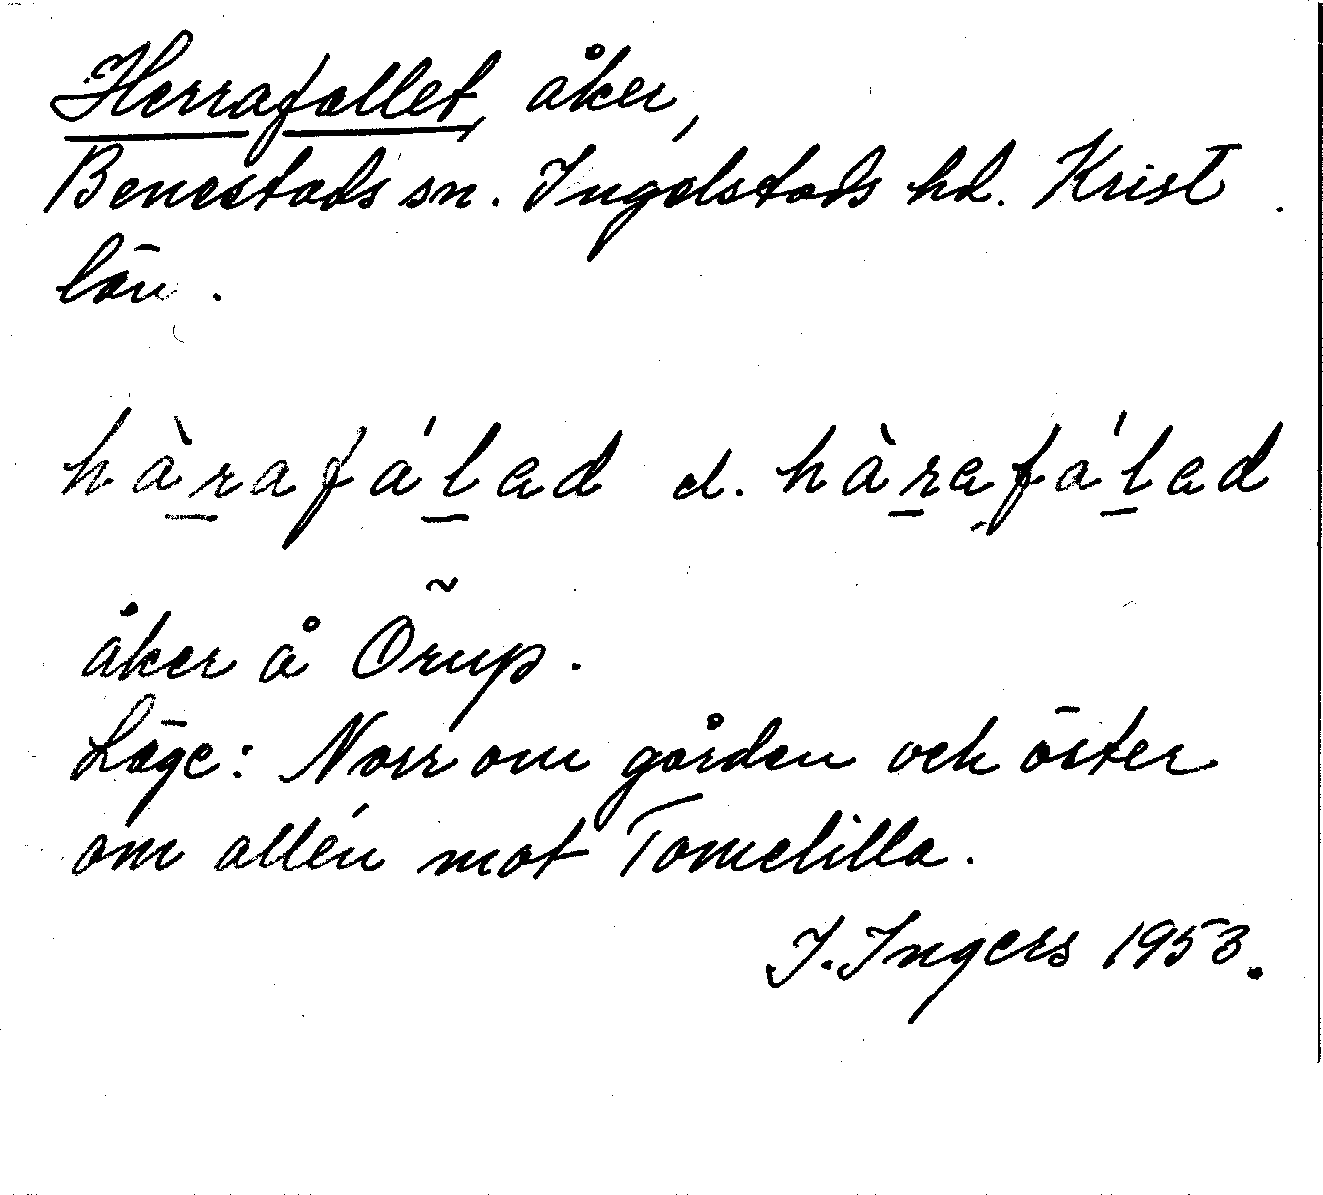 Herrafallet, åker,
Benestads sn. Ingelstads hd. Krist.
län.
hàrafálad el. hàrafálad
åker å Örup.
Läge: Norr om gården och öster
om allén mot Tomelilla.
I. Ingers 1953.